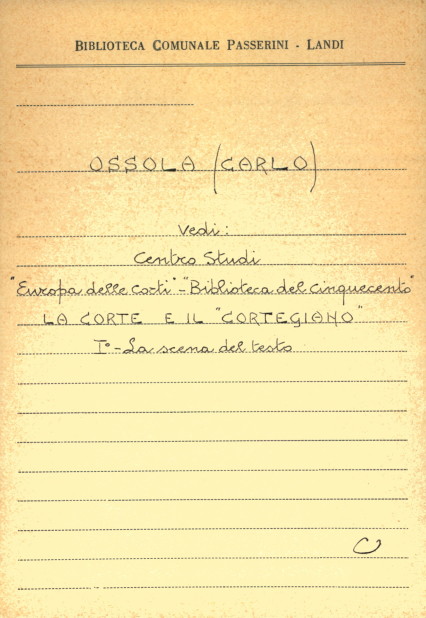 BIBLIOTECA COMUNALE PASSERINI - LANDI
OSSOLA (CARLO)
Vedi:
Centro Studi
"Europa delle Corti" - "Biblioteca del Cinquecento"
LA CORTE E IL "CORTEGIANO"
I° - La scena del testo
C